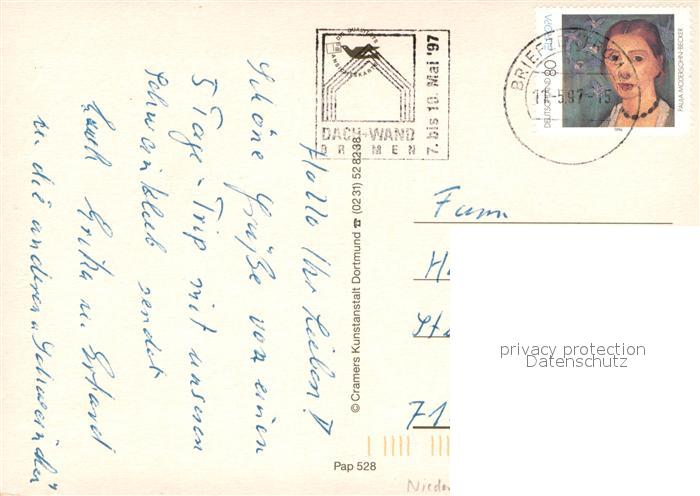 Hallo Ihr Lieben!!
Schöne Grüße von einen
5 Tage-Trip mit unseren
Schwimklub sendet
Euch Erika u. Erhard
u. die anderen „Schweinchen"
© Cramers Kunstanstalt Dortmund ☎ (02 31) 52 82 38
Pap 528
DIE QUALITÄTS
ANSICHTSKARTE
DACH+WAND
BREMEN
7. bis 10. Mai '97
BRIEF
5.97-15
DEUTSCHLAND 80
PAULA MODERSOHN-BECKER
1996
Fam
H
St
71
Nieder
privacy protection
Datenschutz